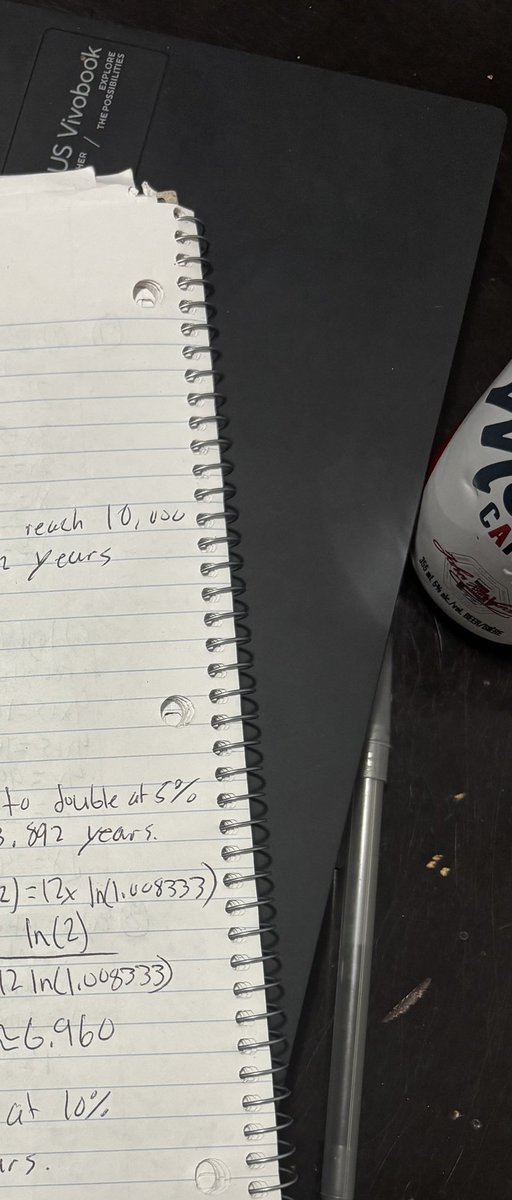 US Vivobook
HER / EXPLORE
THE POSSIBILITIES
reach 10,000
2 years
to double at 5%
3.892 years.
2) = 12x ln(1.008333)
ln(2)
12 ln(1.008333)
≈6.960
at 10%
ars.
CA
355 ml 5% alc./vol. BEER/BIÈRE